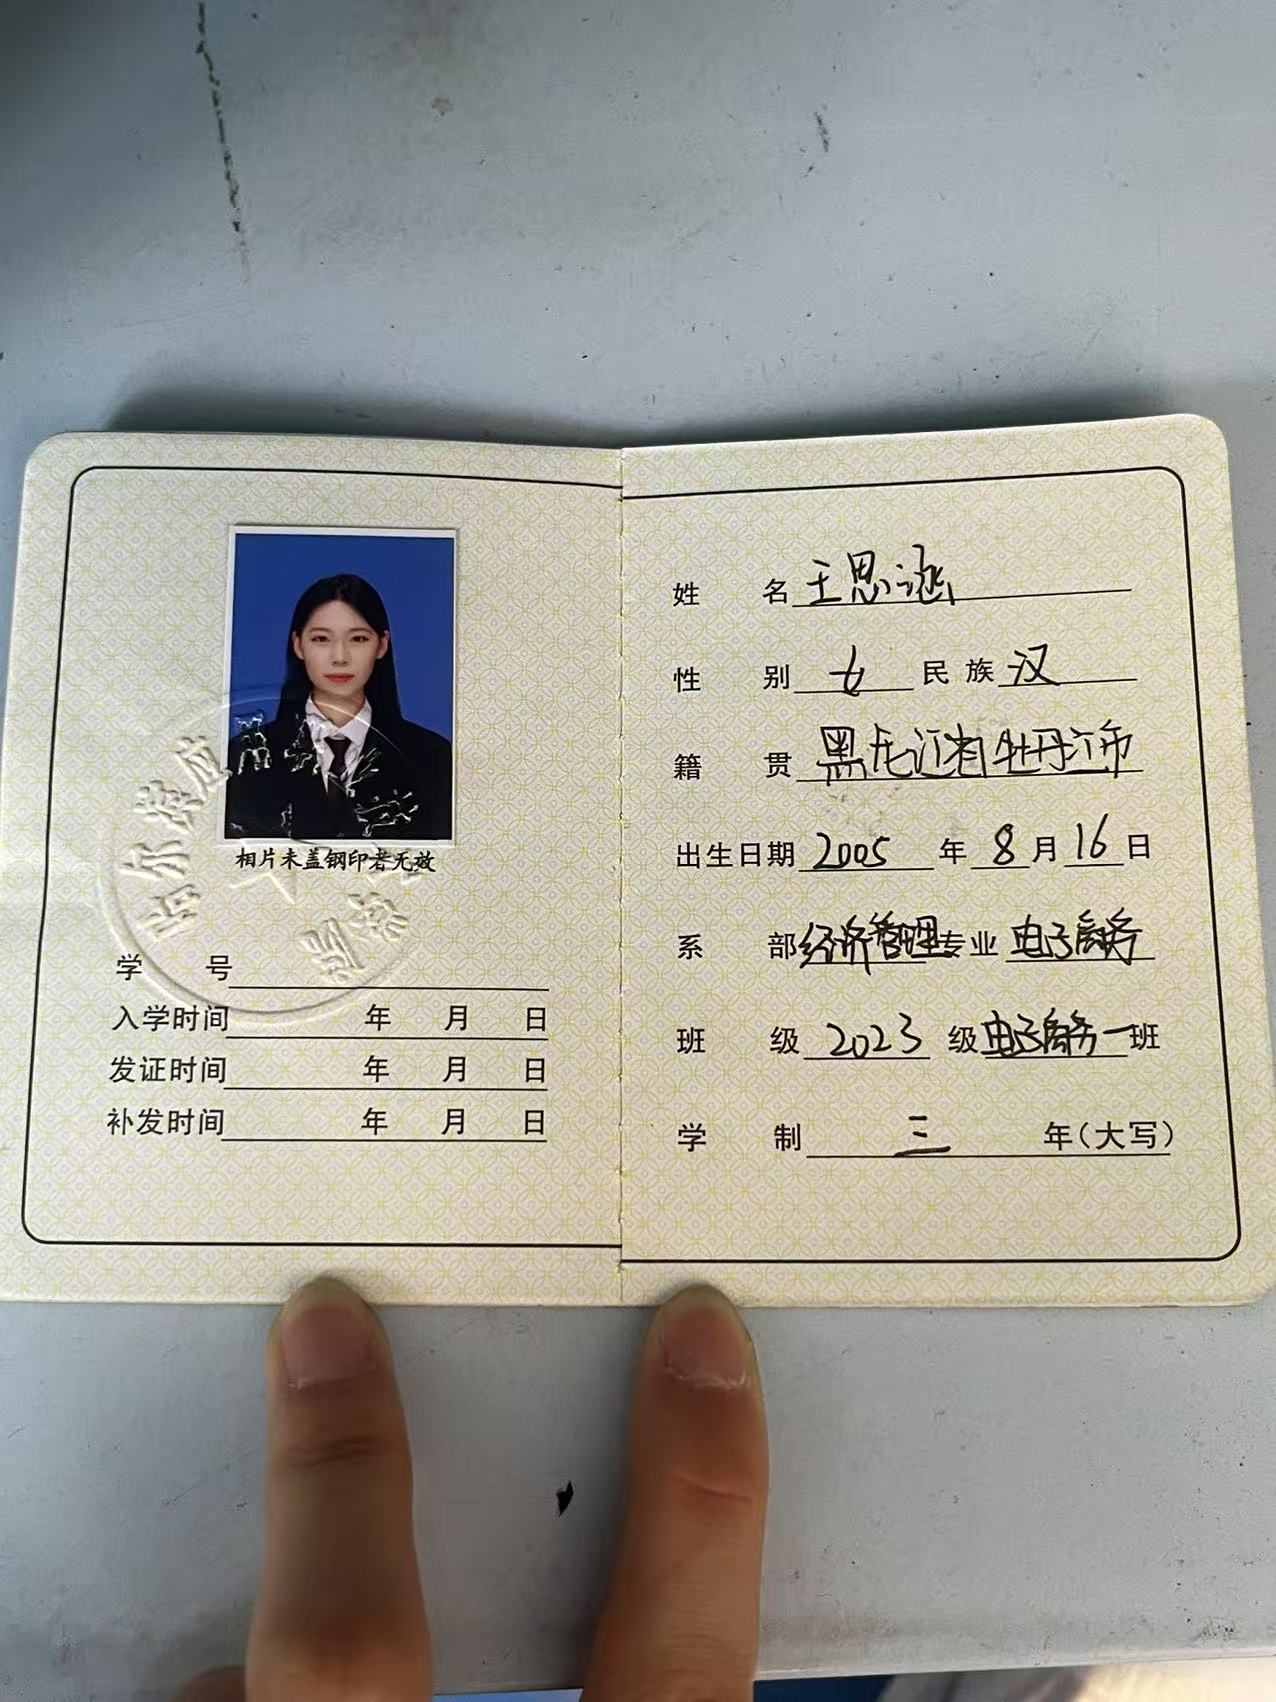 相片未盖钢印者无效
学 号
入学时间 年 月 日
发证时间 年 月 日
补发时间 年 月 日
姓 名 王思涵
性 别 女 民族 汉
籍 贯 黑龙江省牡丹江市
出生日期 2005 年 8 月 16 日
系 部 经济管理 专业 电子商务
班 级 2023 级 电子商务一班
学 制 三 年(大写)